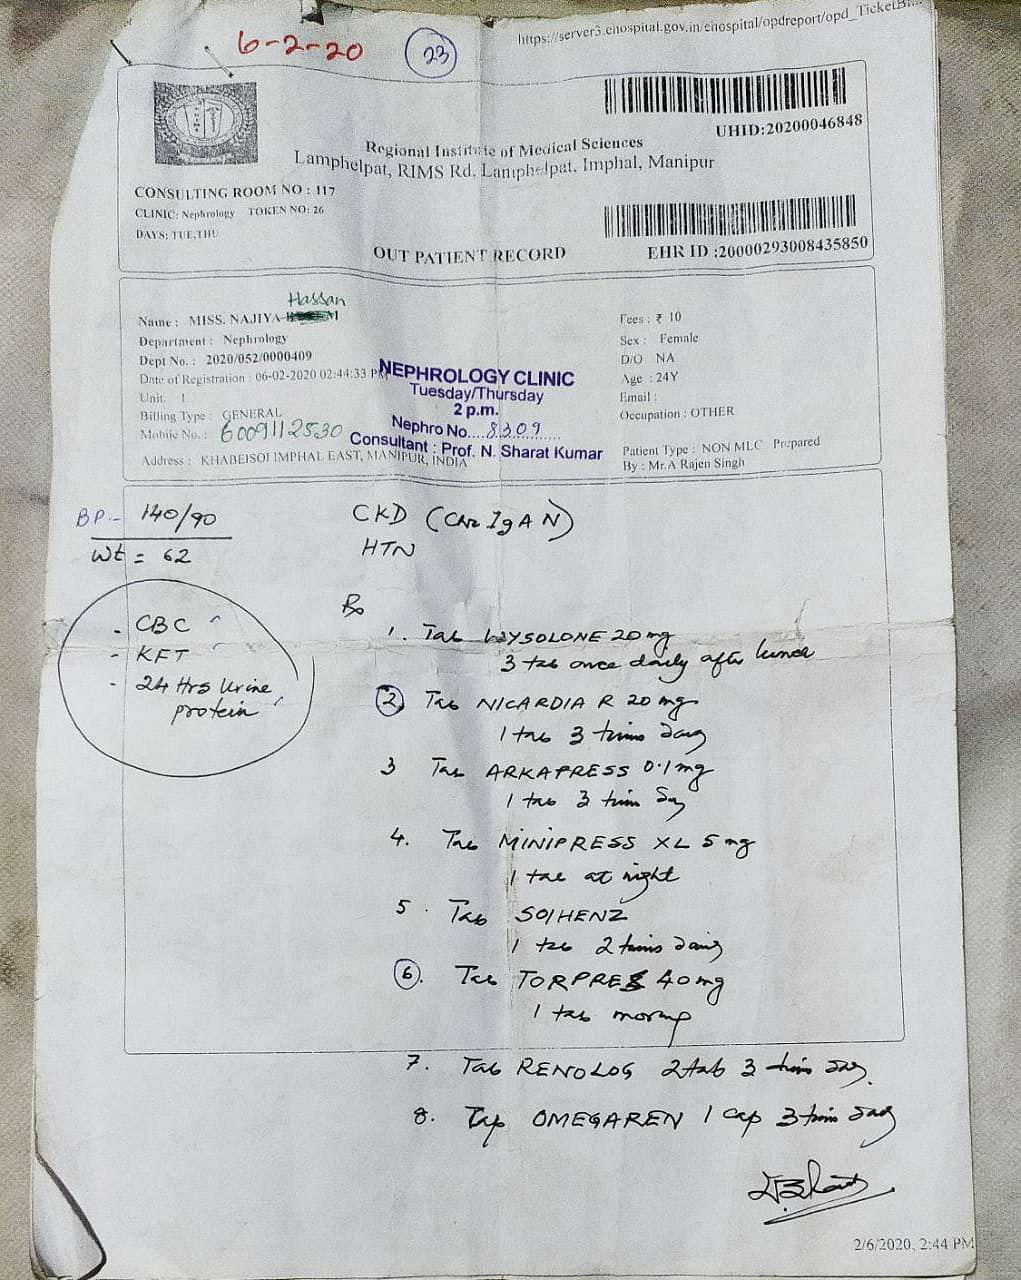 6-2-20
23
https://server3.ehospital.gov.in/ehospital/opdreport/opd_TicketBi
UHID:20200046848
Regional Institute of Medical Sciences
Lamphelpat, RIMS Rd, Lamphelpat, Imphal, Manipur
CONSULTING ROOM NO : 117
CLINIC: Nephrology TOKEN NO: 26
DAYS: TUE,THU
OUT PATIENT RECORD
EHR ID :20000293008435850
Hassan
Name : MISS. NAJIYA
Department : Nephrology
Dept No. : 2020/052/0000409
Date of Registration : 06-02-2020 02:44:33 PM
Unit: 1
Billing Type : GENERAL
Mobile No. : 6009112530
Address : KHABEISOI IMPHAL EAST, MANIPUR, INDIA
NEPHROLOGY CLINIC
Tuesday/Thursday
2 p.m.
Nephro No....8309
Consultant : Prof. N. Sharat Kumar
Fees : ₹ 10
Sex : Female
D/O NA
Age : 24Y
Email :
Occupation : OTHER
Patient Type : NON MLC Prepared
By : Mr.A Rajen Singh
BP- 140/90
Wt = 62
- CBC
- KFT
- 24 Hrs Urine
protein
CKD (IgAN)
HTN
Rx
1. Tab WYSOLONE 20 mg
3 tab once daily after lunch
2. Tab NICARDIA R 20 mg
1 tab 3 times day
3 Tab ARKAPRESS 0.1 mg
1 tab 3 times day
4. Tab MINIPRESS XL 5 mg
1 tab at night
5. Tab
1 tab 2 times daily
6. Tab 40 mg
1 tab morning
7. Tab RENOLOG 2 tab 3 times day.
8. Cap OMEGAREN 1 cap 3 times day
2/6/2020, 2:44 PM